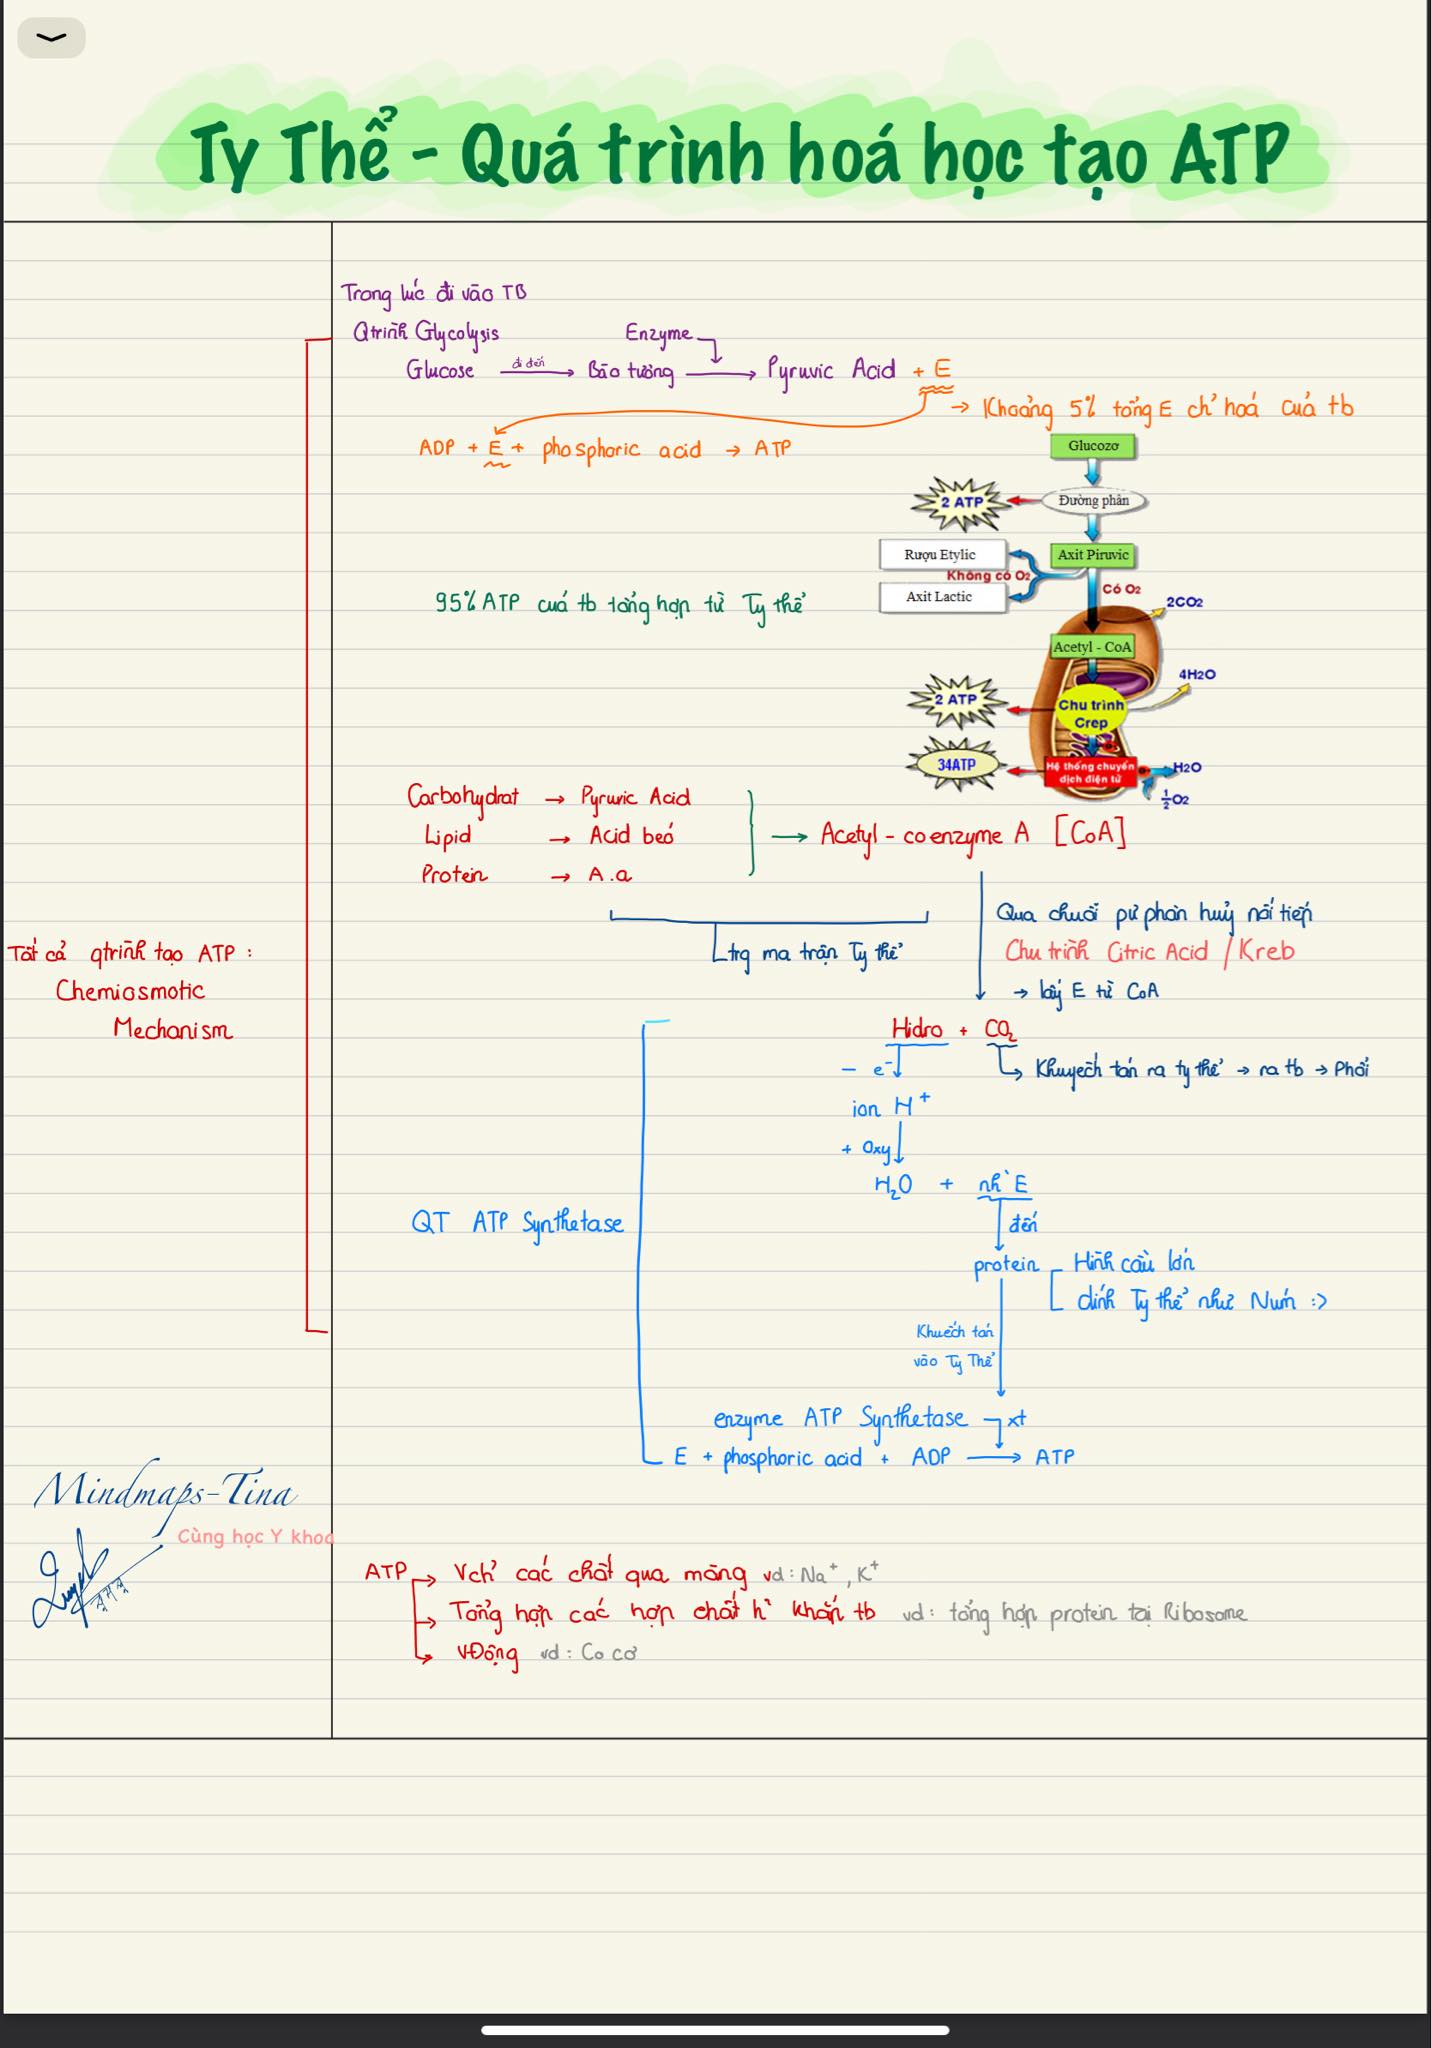 Ty Thể - Quá trình hoá học tạo ATP
Trong lúc đi vào TB
Qtrình Glycolysis
Enzyme
Glucose đi đến Bào tương → Pyruvic Acid + E
→ Khoảng 5% tổng E ch' hoá của tb
ADP + E + phosphoric acid → ATP
Glucozơ
2 ATP
Đường phân
Rượu Etylic
Axit Piruvic
Không có O2
Có O2
Axit Lactic
2CO2
95% ATP của tb tổng hợp từ Ty thể
Acetyl - CoA
4H2O
2 ATP
Chu trình
Crep
34ATP
Hệ thống chuyển
dịch điện tử
H2O
½O2
Carbohydrat → Pyruvic Acid
Lipid → Acid béo
Protein → A.a
→ Acetyl - coenzyme A [CoA]
Qua chuỗi pư phân huỷ nối tiếp
trg ma trận Ty thể
Chu trình Citric Acid / Kreb
→ lấy E từ CoA
Tất cả qtrình tạo ATP :
Chemiosmotic
Mechanism
Hidro + CO₂
Khuyếch tán ra ty thể → ra tb → Phổi
- e⁻
ion H⁺
+ Oxy
H₂O + nh` E
đến
QT ATP Synthetase
protein
Hình cầu lớn
dính Ty thể như Núm :>
Khuếch tán
vào Ty Thể
enzyme ATP Synthetase xt
E + phosphoric acid + ADP → ATP
Mindmaps-Tina
Cùng học Y khoa
ATP
→ Vch' các chất qua màng vd: Na⁺, K⁺
→ Tổng hợp các hợp chất h` khắp tb vd: tổng hợp protein tại Ribosome
→ VĐộng vd: Co cơ